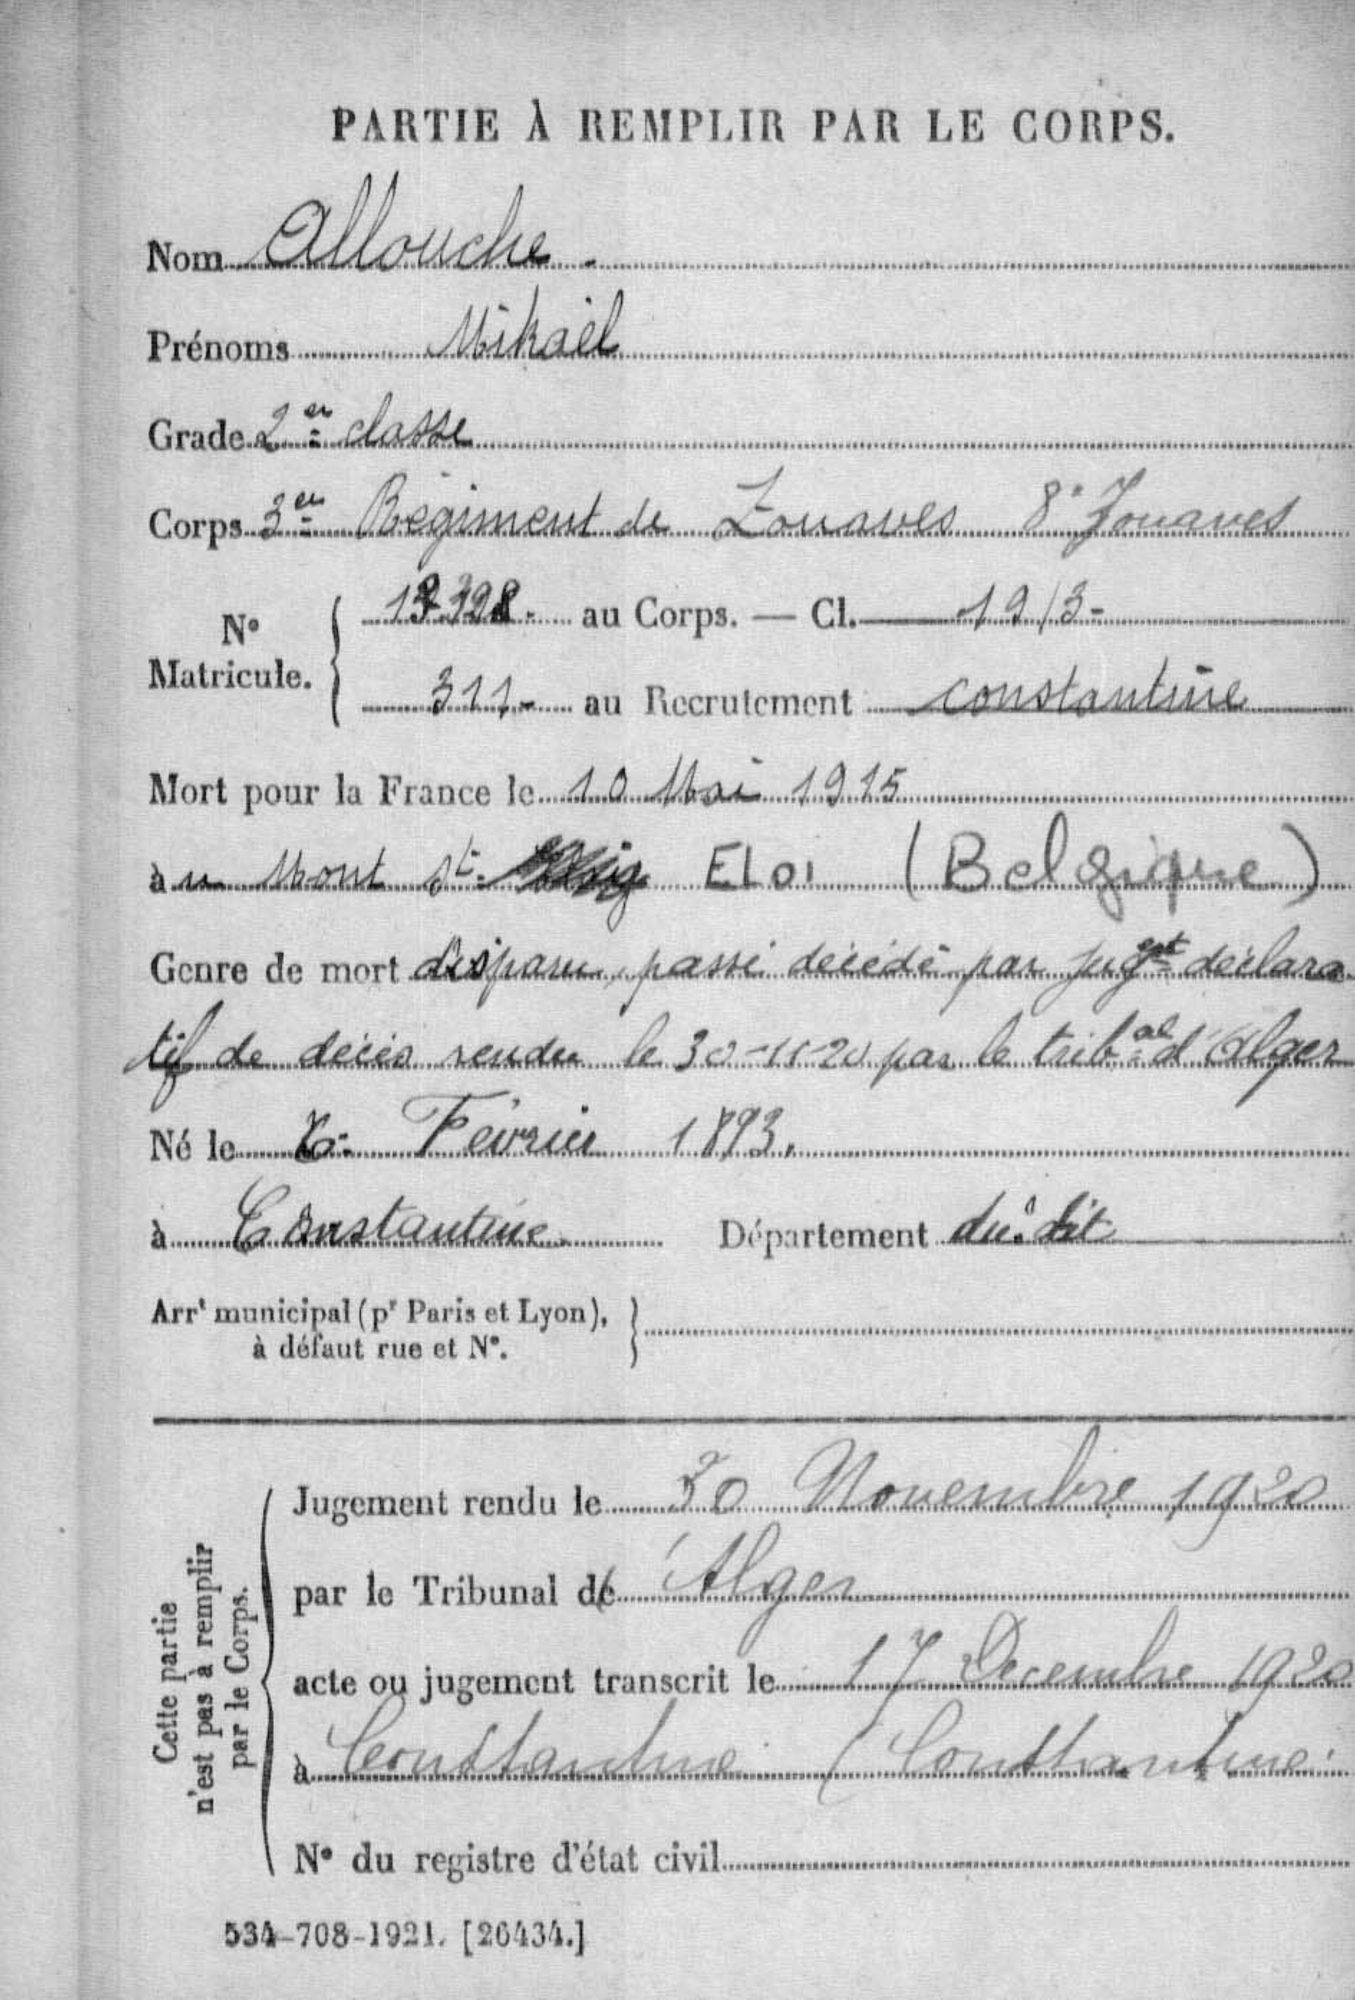 PARTIE À REMPLIR PAR LE CORPS.
Nom Allouche.
Prénoms Mikaël
Grade 2er classe
Corps 3er Régiment de Zouaves 8e Zouaves
N° Matricule.
au Corps. — Cl. 1913-
311- au Recrutement Constantine
Mort pour la France le 10 Mai 1915
à u Mont St. ELOI (Belgique)
Genre de mort disparu, passé décédé par jugt déclara
tif de décès rendu le 30-11-20 par le tribal d'Alger
Né le Février 1893.
à Constantine Département du dit
Arrt municipal (pr Paris et Lyon), à défaut rue et N°.
Cette partie n'est pas à remplir par le Corps.
Jugement rendu le 30 Novembre 1920
par le Tribunal de Alger
acte ou jugement transcrit le 17 Decembre 1920
à Constantine (Constantine
N° du registre d'état civil
534-708-1921. [26434.]